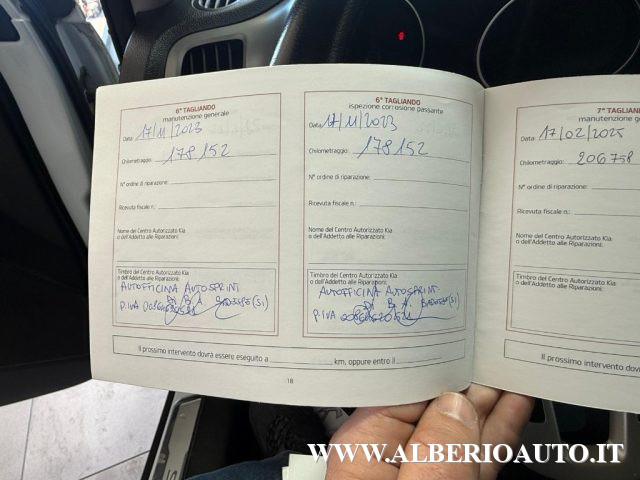 6° TAGLIANDO
manutenzione generale
Data: 17/11/2023
Chilometraggio: 178152
N° ordine di riparazione:
Ricevuta fiscale n.:
Nome del Centro Autorizzato Kia
o dell'Addetto alle Riparazioni:
Timbro del Centro Autorizzato Kia
o dell'Addetto alle Riparazioni:
AUTOFFICINA AUTOSPRINT
DI B.A. (SI)
P.IVA
6° TAGLIANDO
ispezione corrosione passante
Data: 17/11/2023
Chilometraggio: 178152
N° ordine di riparazione:
Ricevuta fiscale n.:
Nome del Centro Autorizzato Kia
o dell'Addetto alle Riparazioni:
Timbro del Centro Autorizzato Kia
o dell'Addetto alle Riparazioni:
AUTOFFICINA AUTOSPRINT
DI B.A. (SI)
P.IVA
Il prossimo intervento dovrà essere eseguito a km, oppure entro il
18
7° TAGLIANDO
Data: 17/02/2025
Chilometraggio: 206758
N° ordine di riparazione:
Ricevuta fiscale n.:
Nome del Centro Autorizzato Kia
o dell'Addetto alle Riparazioni:
Timbro del Centro Autorizzato Kia
o dell'Addetto alle Riparazioni:
Il prossimo intervento dovrà
WWW.ALBERIOAUTO.IT